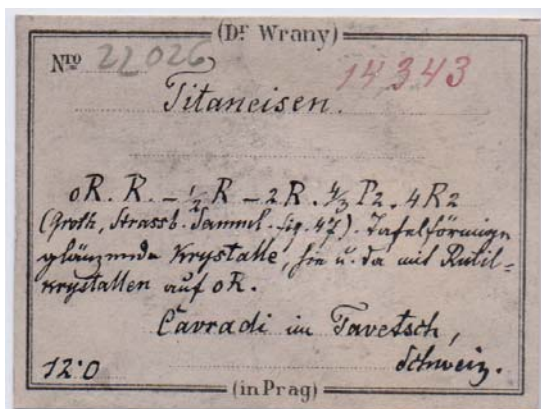 (Dr Wrany)
Nro 22026
14343
Titaneisen.
oR. R. - ½R - 2R. 4/3 P2. 4R2
(Groth, Strassb. Samml. fig. 47). Tafelförmige
glänzende Krystalle, hie u. da mit Rutil=
krystallen auf oR.
Cavradi im Tavetsch,
Schweiz.
12·0
(in Prag)